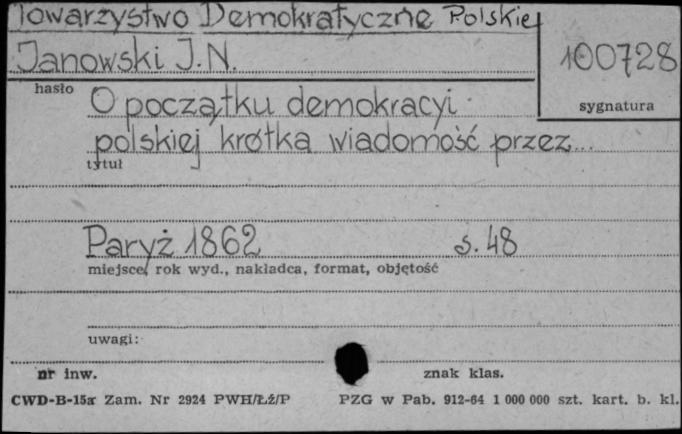 Towarzystwo Demokratyczne Polskie
Janowski J. N.
100728
hasło
sygnatura
O początku demokracyi
polskiej krótka wiadomość przez...
tytuł
Paryż 1862 s. 48
miejsce, rok wyd., nakładca, format, objętość
uwagi:
nr inw. znak klas.
CWD-B-15a Zam. Nr 2924 PWH/Łź/P PZG w Pab. 912-64 1 000 000 szt. kart. b. kl.